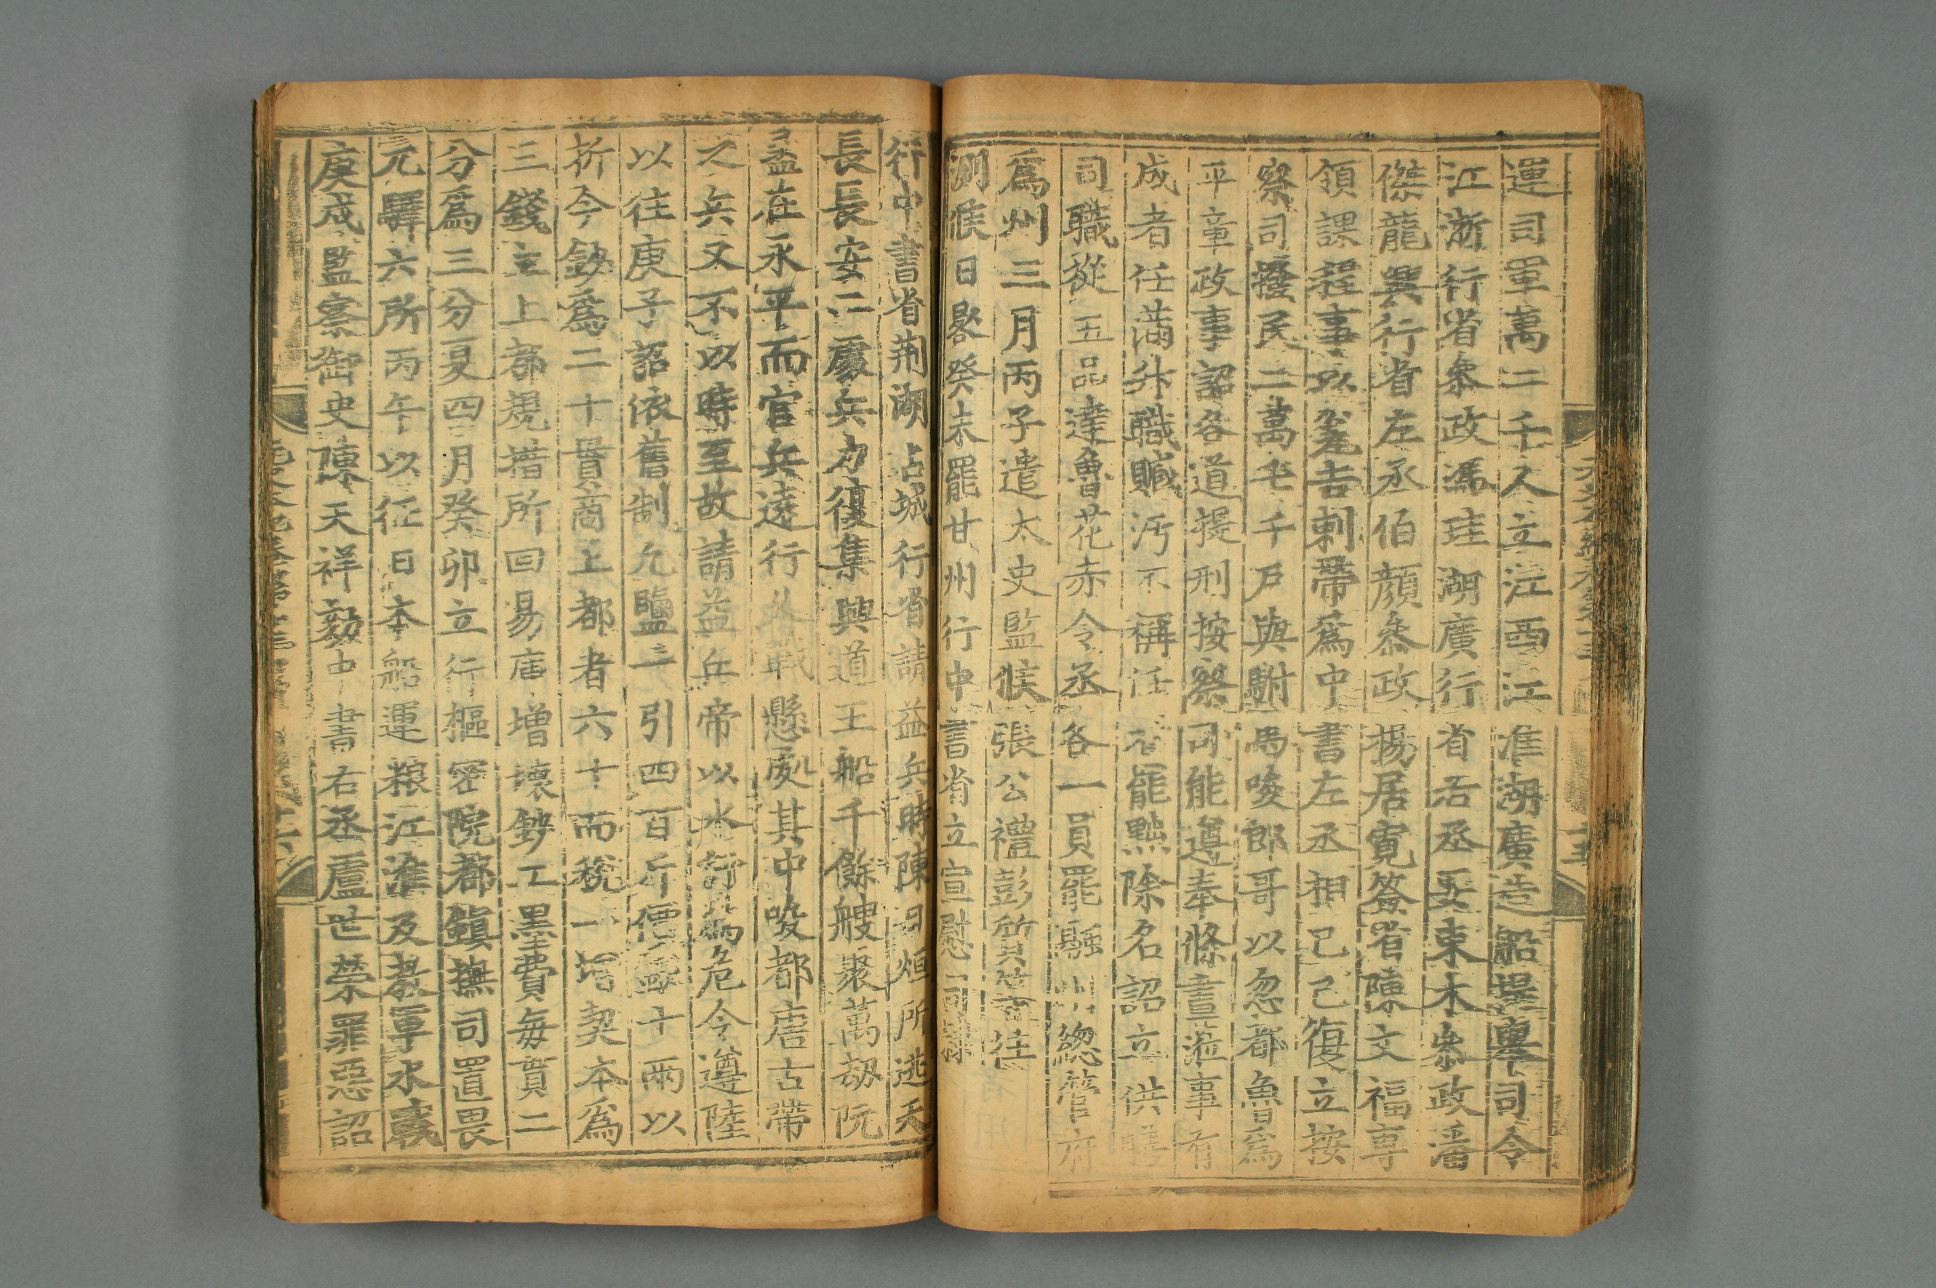 運司軍萬二千人立江西江淮湖廣造船提舉司令
江浙行省參政馮珪湖廣行省右丞要束木參政潘
傑龍興行省左丞伯顔參政楊居寬簽省陳文福專
領課程事以瓮吉剌帶爲中書左丞相己巳復立按
察司撥民二萬七千戶與駙馬唆郎哥以忽都魯爲
平章政事詔各道提刑按察司能遵奉條畫蒞事有
成者任滿升職贓汚不稱任者罷黜除名詔立供膳
司職從五品達魯花赤令丞各一員罷融州總管府
爲州三月丙子遣太史監候張公禮彭質等往
測候日晷癸未罷甘州行中書省立宣慰司隸
行中書省荆湖占城行省請益兵時陳日烜所逃天
長長安二處兵力復集興道王船千餘艘聚萬劫阮
盝在永平而官兵遠行久戰懸處其中唆都唐古帶
之兵又不以時至故請益兵帝以水行爲危令遵陸
以往庚子詔依舊制凡鹽一引四百斤價銀十兩以
折今鈔爲二十貫商上都者六十而稅一增契本爲
三錢立上都規措所回易庫增壞鈔工墨費每貫二
分爲三分夏四月癸卯立行樞密院都鎮撫司置畏
兀驛六所丙午以征日本船運粮江淮及教軍水戰
庚戌監察御史陳天祥劾中書右丞盧世榮罪惡詔